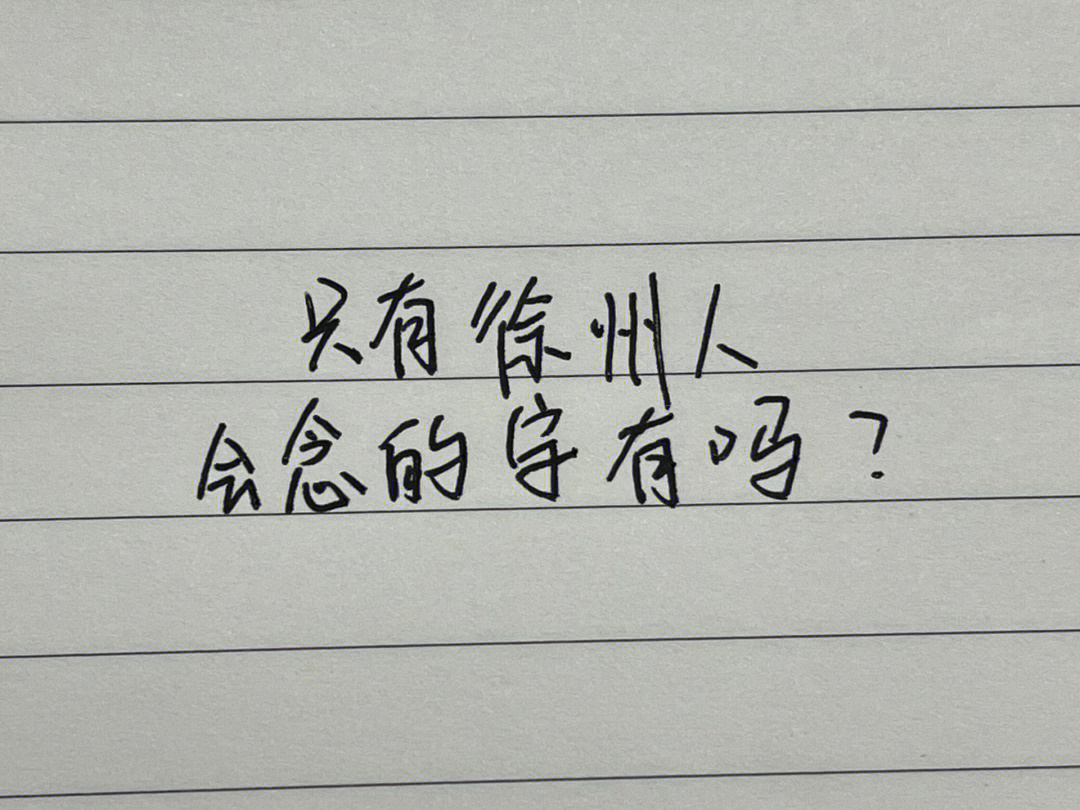 只有徐州人
会念的字有吗?